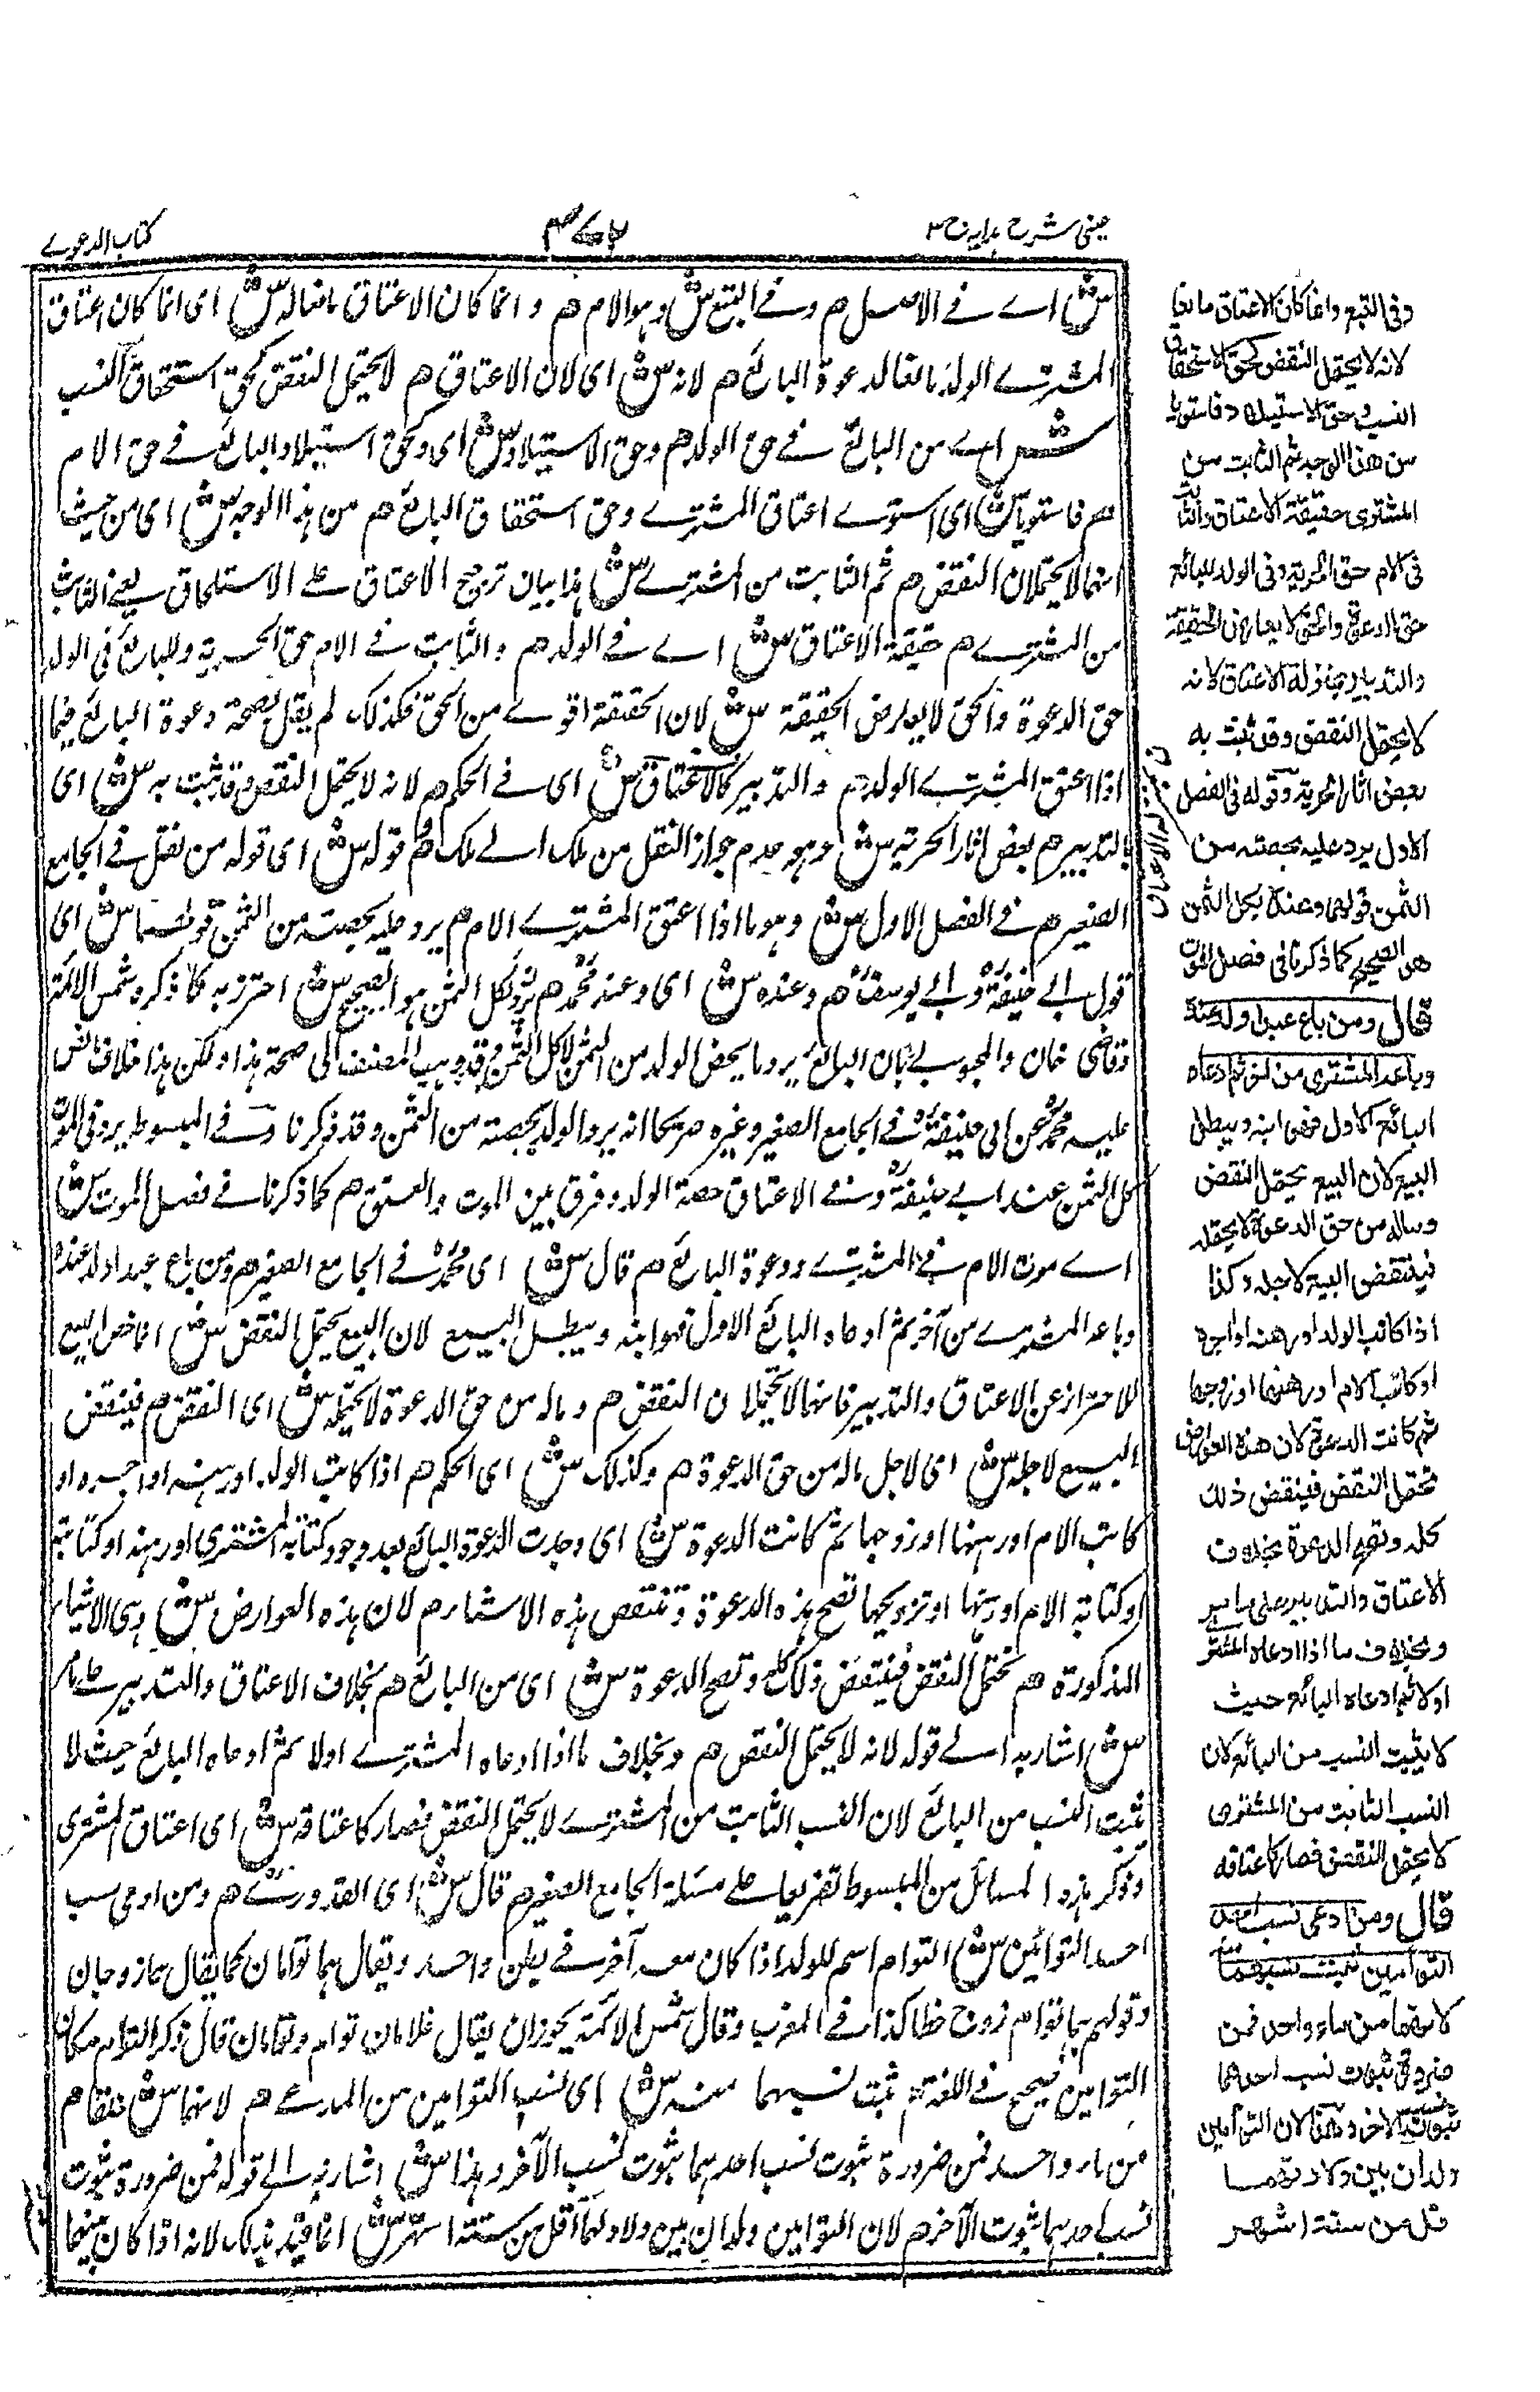 عینی شرح ہدایہ ج ٣
٤٧٢
كتاب الدعوے
ش اے فے الاصل م وفے التبع ش وہو الام م وانما كان الاعتاق مانعا لہ ش ای انما كان اعتاق
المشترے الولد مانعا لدعوة البائع م لانہ ش ای لان الاعتاق م لا يحتمل النقض كحق استحقاق النسب
ش اے من البائع فے حق الولد م وحق الاستيلاد ش ای وكحق استيلاد البائع فے حق الام
م فاستويا ش ای استوے اعتاق المشترے وحق استحقاق البائع م من ہذا الوجہ ش ای من حيث
انہما لا يحتملان النقض م ثم الثابت من المشترے ش ہذا بيان ترجيح الاعتاق علے الاستلحاق يعنے الثابت
من المشترے م حقيقة الاعتاق ش اے فے الولد م والثابت فے الام حق الحرية وللبائع فی الولد
حق الدعوة والحق لا يعارض الحقيقة ش لان الحقيقة اقوے من الحق فكذلك لم يقل بصحة دعوة البائع فيما
اذا اعتق المشترے الولد م والتدبير كالاعتاق ش ای فے الحكم م لانہ لا يحتمل النقض وقد ثبت بہ ش ای
بالتدبير م بعض اثار الحرية ش وہو عدم جواز النقل من ملك الے ملك م قولہ ش ای قولہ من نقل فے الجامع
الصغير م فے الفصل الاول ش وہو ما اذا اعتق المشترے الام م يرد عليہ بحصتہ من الثمن قولہما ش ای
قول ابے حنيفة وابے يوسف م وعندہ ش ای وعند محمد م يرد بكل الثمن ہو الصحيح ش احترز بہ عما ذكرہ شمس الائمة
وقاضی خان والمحبوبے بان البائع يرد ما يخص الولد من الثمن لا كل الثمن وقد ذہب المصنف الی صحة ہذا ولكن ہذا خلاف نص
عليہ محمد عن ابی حنيفة فے الجامع الصغير وغيرہ صريحا انہ يرد الولد بحصتہ من الثمن وقد ذكرنا وفے المبسوط يرد فی الموت
كل الثمن عند ابے حنيفة وفے الاعتاق حصة الولد وفرق بين الموت والعتق م كما ذكرنا فے فصل الموت ش
اے موت الام فے المشترے ودعوة البائع م قال ش ای محمد فے الجامع الصغير م ومن باع عبدا ولد عندہ
وباعہ المشترے من آخر ثم ادعاہ البائع الاول فہو ابنہ ويبطل البيع لان البيع يحتمل النقض ش انما خص البيع
للاحتراز عن الاعتاق والتدبير فانہما لا يحتملان النقض م ومالہ من حق الدعوة لا يحتملہ ش ای النقض م فينقض
البيع لاجلہ ش ای لاجل مالہ من حق الدعوة م وكذلك ش ای الحكم م اذا كاتب الولد او رہنہ او اجرہ او
كاتب الام او رہنہا او زوجہا ثم كانت الدعوة ش ای وجدت الدعوة البائع بعد وجود كتابة المشتری او رہنہ او كتابتہ
او كتابة الام او رہنہا او تزويجہا تصح ہذہ الدعوة وتنتقض ہذہ الاشياء م لان ہذہ العوارض ش وہی الاشياء
المذكورة م تحتمل النقض فينتقض ذلك كلہ وتصح الدعوة ش ای من البائع م بخلاف الاعتاق والتدبير علے ما مر
ش اشار بہ الے قولہ لانہ لا يحتمل النقض م وبخلاف ما اذا ادعاہ المشترے اولا ثم ادعاہ البائع حيث لا
يثبت النسب من البائع لان النسب الثابت من المشترے لا يحتمل النقض فصار كاعتاقہ ش ای اعتاق المشتری
وذكر ہذہ المسائل من المبسوط تفريعا علے مسئلة الجامع الصغير م قال ش ای القدورے م ومن ادعی نسب
احد التوأمين ش التوأم اسم للولد اذا كان معہ آخر فے بطن واحد ويقال ہما توأمان كما يقال ہما زوجان
وقولہم ہما توأم وزوج خطا كذا فے المغرب وقال شمس الائمة يجوز ان يقال غلامان توأم وتوأمان قال ذكر التوأم مكان
التوأمين صحيح فے اللغة م ثبت نسبہما منہ ش ای نسب التوأمين من المدعے م لانہما ش خلقا م
من ماء واحد فمن ضرورة ثبوت نسب احدہما ثبوت نسب الآخر وہذا ش اشار بہ الے قولہ فمن ضرورة ثبوت
نسب احدہما ثبوت الآخر م لان التوأمين ولدان بين ولادتہما اقل من ستة اشہر ش انما قيد بذلك لانہ اذا كان بينہما
وفی التبع وانما كان الاعتاق مانعا
لانه لا يحتمل النقض كحق استحقاق
النسب وحق الاستيلاد فاستويا
من هذا الوجه ثم الثابت من
المشتری حقيقة الاعتاق والثابت
فی الام حق الحرية وفی الولد للبائع
حق الدعوة والحق لا يعارض الحقيقة
والتدبير بمنزلة الاعتاق لانه
لا يحتمل النقض وقد ثبت به
بعض اثار الحرية وقوله فی الفصل
الاول يرد عليه بحصته من
الثمن قولهما وعنده بكل الثمن
هو الصحيح كما ذكرنا فی فصل الموت
قال ومن باع عبدا ولد عنده
وباعه المشتری من اخر ثم ادعاه
البائع الاول فهو ابنه ويبطل
البيع لان البيع يحتمل النقض
وماله من حق الدعوة لا يحتمله
فينتقض البيع لاجله وكذا
اذا كاتب الولد او رهنه او اجره
او كاتب الام او رهنها او زوجها
ثم كانت الدعوة لان هذه العوارض
تحتمل النقض فينقض ذلك
كله وتصح الدعوة بخلاف
الاعتاق والتدبير علی ما مر
وبخلاف ما اذا ادعاه المشتری
اولا ثم ادعاه البائع حيث
لا يثبت النسب من البائع لان
النسب الثابت من المشتری
لا يحتمل النقض فصار كاعتاقه
قال ومن ادعی نسب احد
التوأمين ثبت نسبهما منه
لانهما من ماء واحد فمن
ضرورة ثبوت نسب احدهما
ثبوت نسب الاخر وهذا لان التوأمين
ولدان بين ولادتهما
اقل من ستة اشهر